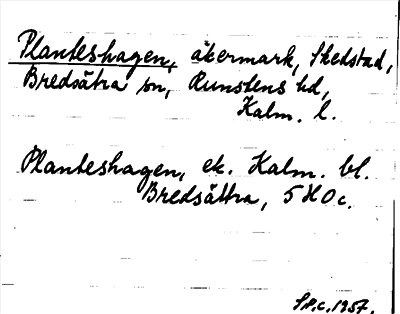 Planteshagen, åkermark, Skedstad,
Bredsätra sn, Runstens hd,
Kalm. l.
Planteshagen, ek. Kalm. bl.
Bredsättra, 5 H O c.
S.P.c. 1957.